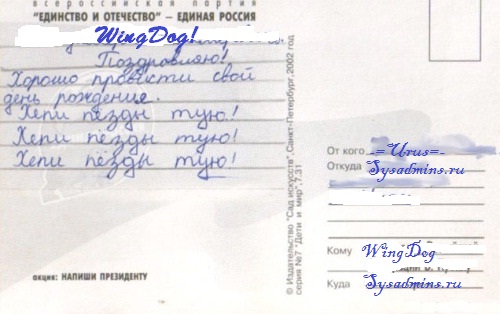 всероссийская партия
"ЕДИНСТВО И ОТЕЧЕСТВО" – ЕДИНАЯ РОССИЯ
WingDog!
Поздравляю!
Хорошо провести свой
день рождения.
Хепи пёзды тую!
Хепи пёзды тую!
Хепи пёзды тую!
акция: НАПИШИ ПРЕЗИДЕНТУ
© Издательство "Сад искусств", Санкт-Петербург, 2002 год
серия №7 "Дети и мир", 7.31
От кого -=Urus=-
Откуда Sysadmins.ru
Кому WingDog
Куда Sysadmins.ru